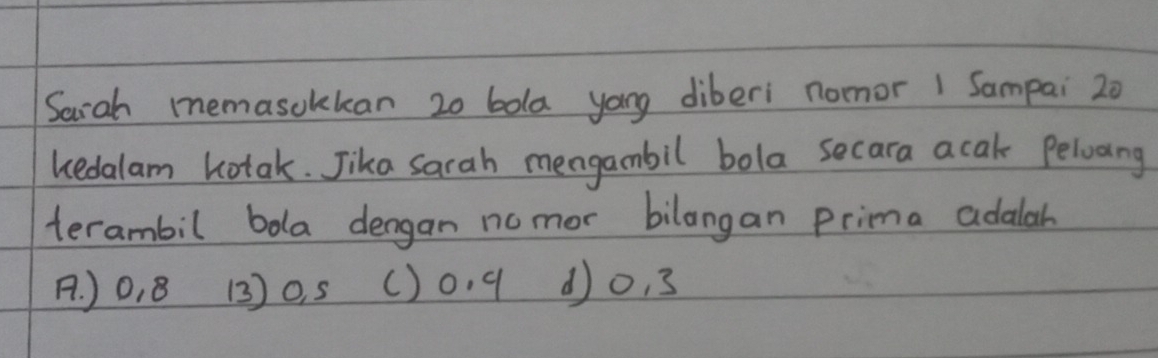 Sarah memasukkan 20 bola yang diberi nomor 1 Sampai 20
kedalam kotak. Jika sarah mengambil bola secara acak Peluang
terambil bola dengan nomor bilangan prima adalah
A.) 0,8 B) 0,5 C) 0,4 d) 0,3